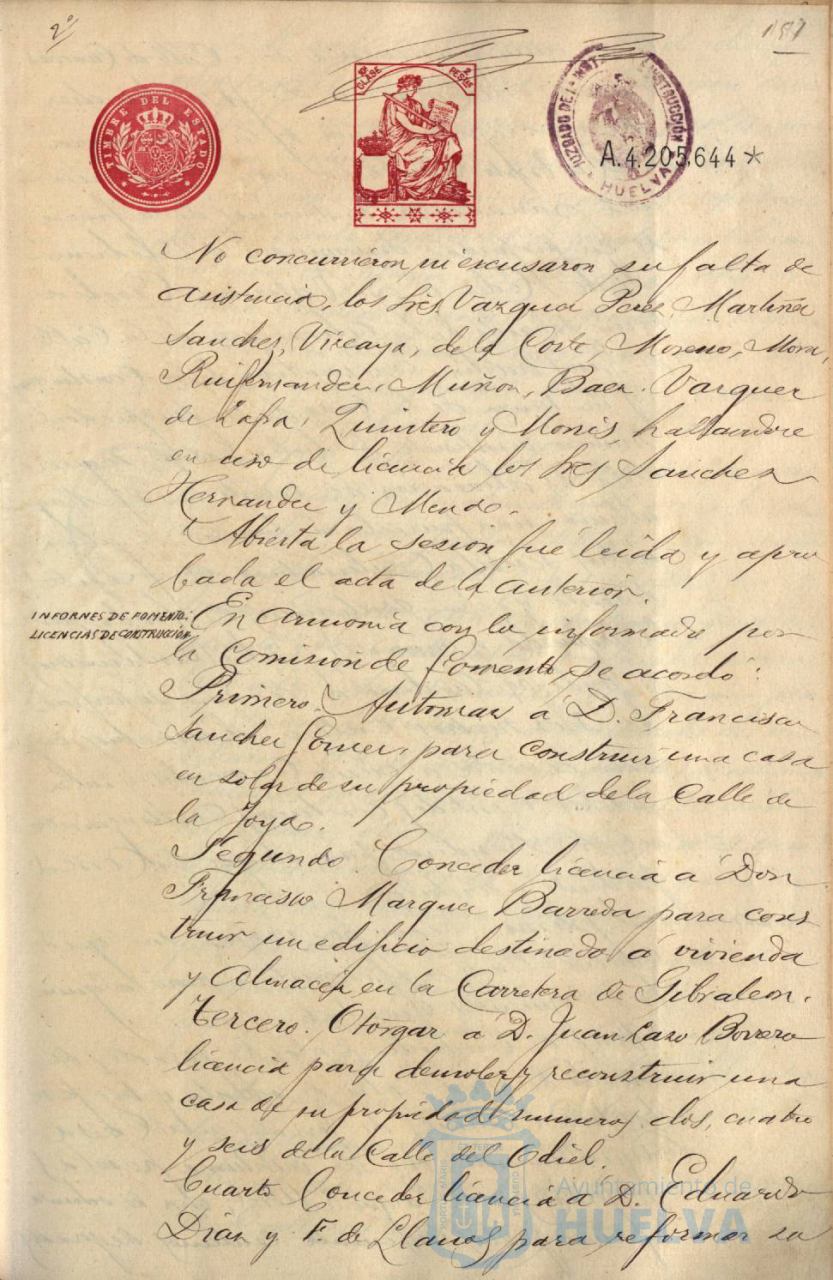 2º
197
TIMBRE DEL ESTADO
10ª CLASE 2 PESETAS
JUZGADO DE 1ª INSTª INSTRUCCIÓN
HUELVA
A.4.205,644*
No concurrieron, ni excusaron su falta de
asistencia, los Sres. Vazquez Perez, Martinez
Sanchez, Vizcaya, de la Corte, Moreno, Mora,
Ruifernandez, Muñoz, Baez, Vazquez
de Zafra, Quintero y Monís, hallandose
en uso de licencia los Sres Sanchez
Hernandez y Mendo.
Abierta la sesión fué leida y apro
bada el acta de la anterior.
INFORNES DE FOMENTO.
LICENCIAS DE CONSTRUCCION
En armonía con lo informado por
la Comisión de Fomento se acordó:
Primero. Autorizar á D. Francisco
Sanchez Gomez, para construir una casa
en solar de su propiedad de la Calle de
la Joya.
Segundo. Conceder licencia á Don
Francisco Marquez Barreda para cons
truir un edificio destinado á vivienda
y Almacén en la Carretera de Gibraleon.
Tercero. Otorgar á D. Juan Lazo Borrero
licencia para demoler y reconstruir una
casa de su propiedad numeros dos, cuatro
y seis de la Calle del Odiel.
Cuarto Conceder licencia á D. Eduardo
Diaz y F. de Llanos para reformar su
Ayuntamiento de
HUELVA